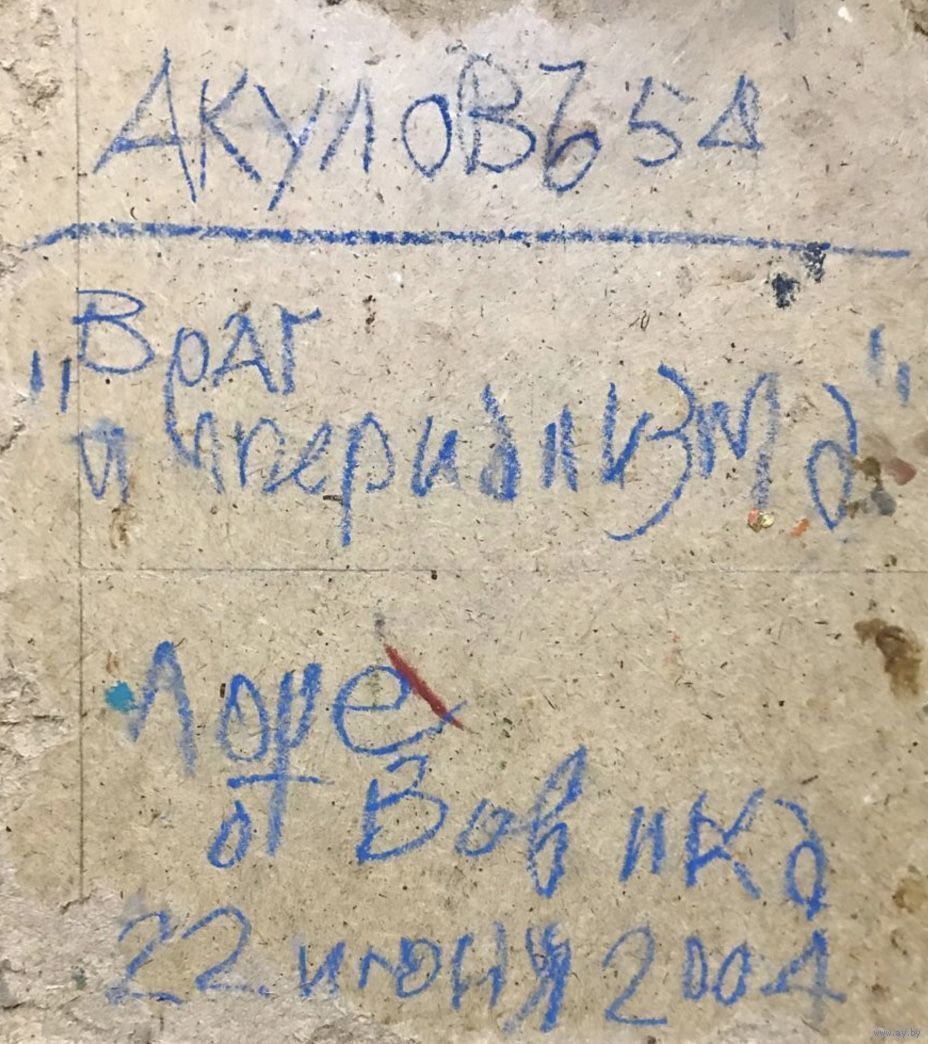 АКУЛОВ Б 5Δ
"Враг
империализма"
Лоре
от Вовика
22 июня 2004
www.ay.by